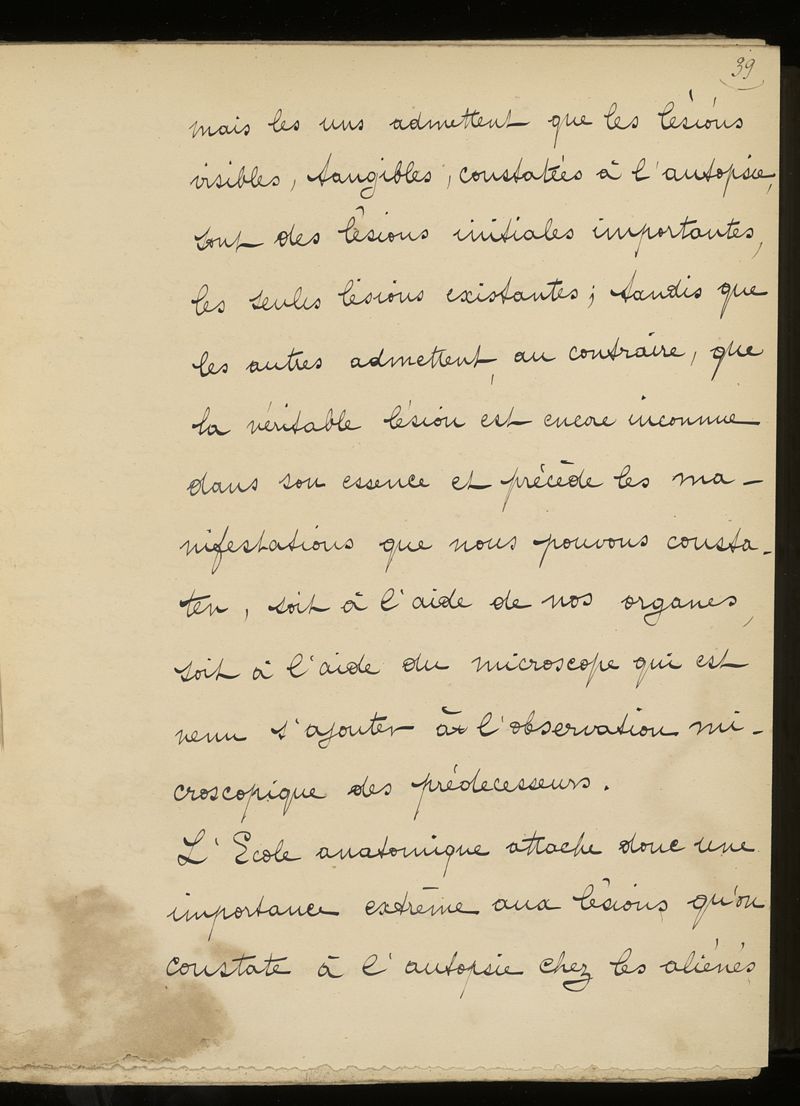 39
mais les uns admettent que les lésions
visibles, tangibles, constatées à l'autopsie,
sont des lésions initiales importantes,
les seules lésions existantes; tandis que
les autres admettent, au contraire, que
la véritable lésion est encore inconnue
dans son essence et précède les ma-
nifestations que nous pouvons consta-
ter, soit à l'aide de nos organes,
soit à l'aide du microscope qui est
venu s'ajouter à l'observation mi-
croscopique des prédecesseurs.
L'Ecole anatomique attache donc une
importance extrême aux lésions qu'on
constate à l'autopsie chez les aliénés